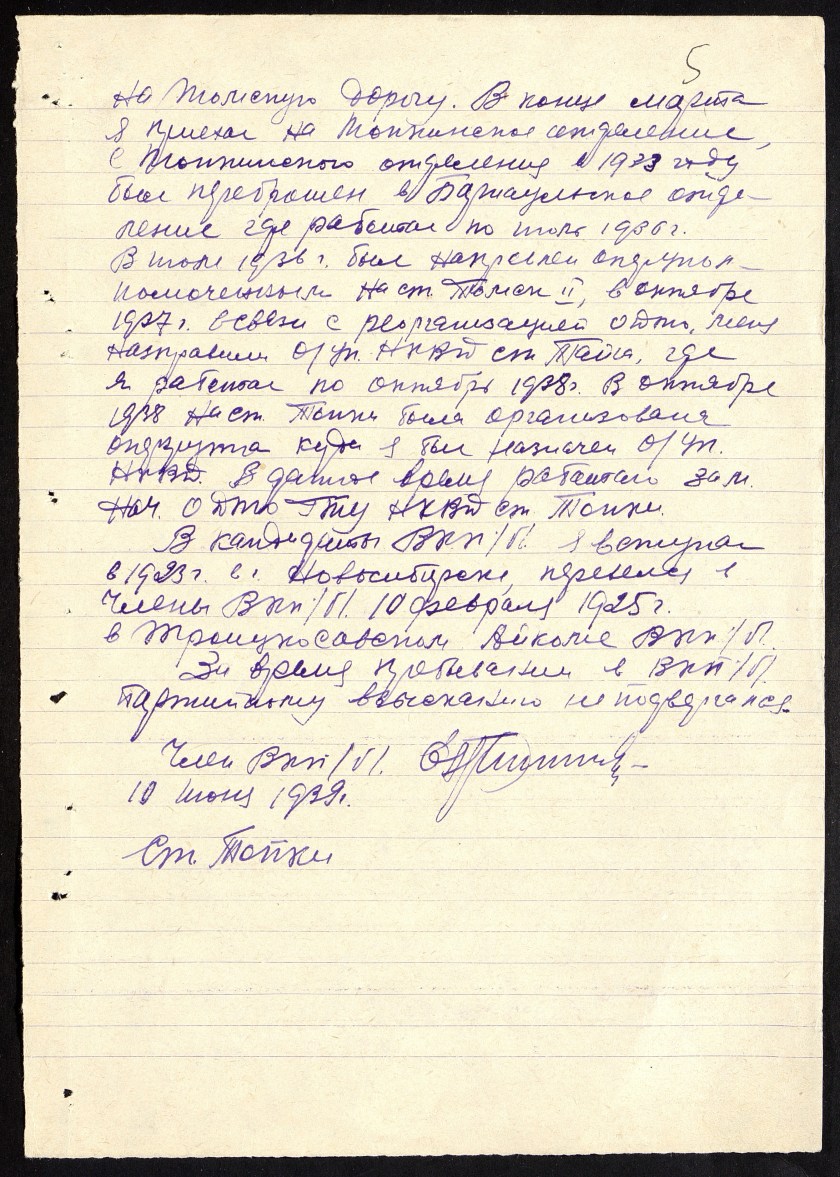 5
на Томскую дорогу. В конце марта
я приехал на Топкинское отделение,
с Топкинского отделения в 1933 году
был переброшен в Барнаульское отде-
ление где работал по июль 1936 г.
В июле 1936 г. был направлен оперупол-
номоченным на ст. Томск II, в октябре
1937 г. в связи с реорганизацией ОДТО, меня
направили О/уп. НКВД ст. Тайга, где
я работал по октябрь 1938 г. В октябре
1938 на ст. Топки была организована
опергруппа куда я был назначен О/уп.
НКВД. В данное время работаю зам.
Нач. ОДТО ГТУ НКВД ст. Топки.
В кандидаты ВКП/б/. я вступал
в 1923 г. в г. Новосибирске, перевелся в
члены ВКП/б/. 10 февраля 1925 г.
в Троицкосавском ВКП/б/.
За время пребывания в ВКП/б/.
партийному взысканию не подвергался.
Член ВКП/б/.
10 июня 1939 г.
Ст. Топки